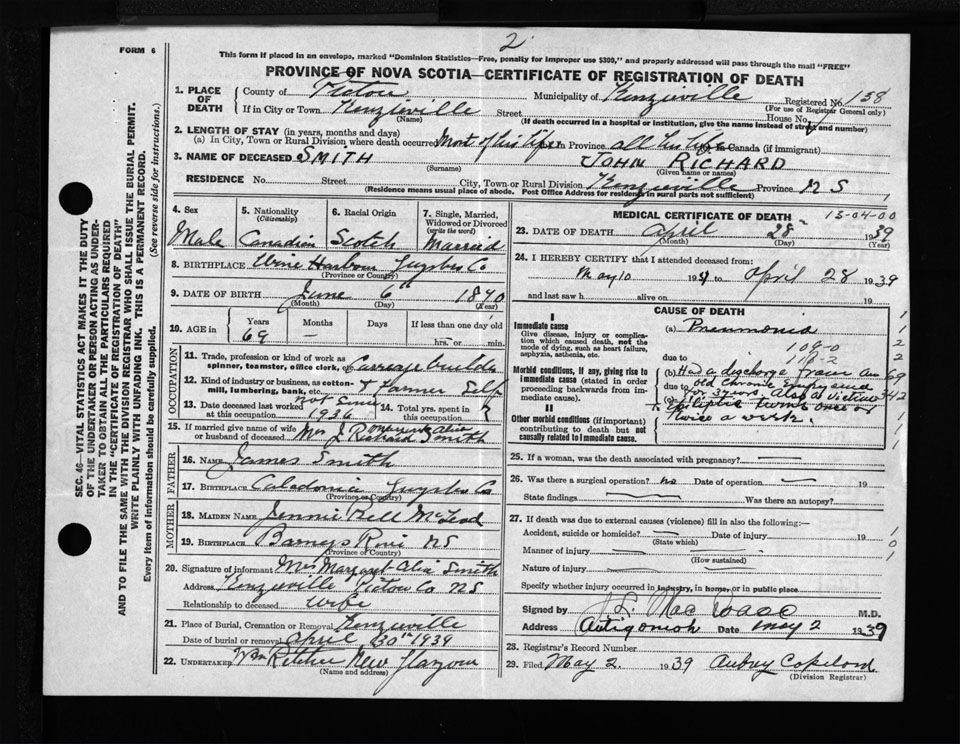 2
FORM 6
This form if placed in an envelope, marked "Dominion Statistics—Free, penalty for improper use $300," and properly addressed will pass through the mail "FREE"
PROVINCE OF NOVA SCOTIA—CERTIFICATE OF REGISTRATION OF DEATH
1. PLACE OF DEATH
County of Pictou Municipality of Kenzieville Registered No. 138
(For use of Registrar General only)
If in City or Town Kenzieville Street House No.
(Name) (If death occurred in a hospital or institution, give the name instead of street and number)
2. LENGTH OF STAY (in years, months and days)
(a) In City, Town or Rural Division where death occurred Most of his life In Province all his life In Canada (if immigrant)
3. NAME OF DECEASED SMITH JOHN RICHARD
(Surname) (Given name or names)
RESIDENCE No. Street City, Town or Rural Division Kenzieville Province N S
(Residence means usual place of abode. Post Office Address for residents in rural parts not sufficient)
4. Sex Male
5. Nationality (Citizenship) Canadian
6. Racial Origin Scotch
7. Single, Married, Widowed or Divorced (write the word) Married
8. BIRTHPLACE Wine Harbour Guysboro Co
(Province or Country)
9. DATE OF BIRTH June 6th 1870
(Month) (Day) (Year)
10. AGE in Years Months Days If less than one day old
69 — — hrs. or min.
OCCUPATION
11. Trade, profession or kind of work as spinner, teamster, office clerk, etc. Carriage builder
12. Kind of industry or business, as cotton-mill, lumbering, bank, etc. & Farmer Self
13. Date deceased last worked at this occupation not since 1936
14. Total yrs. spent in this occupation ?
15. If married give name of wife or husband of deceased Mrs J. Richard Smith
Margaret Alice
FATHER
16. NAME James Smith
17. BIRTHPLACE Caledonia Guysboro Co
(Province or Country)
MOTHER
18. MAIDEN NAME Jennie Bell McLeod
19. BIRTHPLACE Barneys River NS
(Province or Country)
20. Signature of informant Mrs Margaret Alice Smith
Address Kenzieville Pictou Co NS
Relationship to deceased wife
21. Place of Burial, Cremation or Removal Kenzieville
Date of burial or removal April 30th 1939
22. UNDERTAKER New Glasgow
(Name and address)
MEDICAL CERTIFICATE OF DEATH 13-04-00
23. DATE OF DEATH April 28th 1939
(Month) (Day) (Year)
24. I HEREBY CERTIFY that I attended deceased from:
May 10 193 to April 28 1939
and last saw h alive on 19
CAUSE OF DEATH
I
Immediate cause
Give disease, injury or complication which caused death, not the mode of dying, such as heart failure, asphyxia, asthenia, etc.
(a) Pneumonia
109-0
due to 110-2
Morbid conditions, if any, giving rise to immediate cause (stated in order proceeding backwards from immediate cause).
(b) Had a discharge from an
due to old chronic empyema
(c) for 3 years. Also a victim of
II
Other morbid conditions (if important) contributing to death but not causally related to Immediate cause.
Epileptic turns once or
twice a week.
25. If a woman, was the death associated with pregnancy?
26. Was there a surgical operation? no Date of operation 19
State findings Was there an autopsy?
27. If death was due to external causes (violence) fill in also the following:—
Accident, suicide or homicide? Date of injury 19
(State which)
Manner of injury
(How sustained)
Nature of injury
Specify whether injury occurred in industry, in home, or in public place
Signed by M.D.
Address Antigonish Date May 2 1939
28. Registrar's Record Number
29. Filed May 2. 1939 Aubrey Copeland
(Division Registrar)
SEC. 46—VITAL STATISTICS ACT MAKES IT THE DUTY
OF THE UNDERTAKER OR PERSON ACTING AS UNDER-
TAKER TO OBTAIN ALL THE PARTICULARS REQUIRED
IN THE "CERTIFICATE OF REGISTRATION OF DEATH"
AND TO FILE THE SAME WITH THE DIVISION REGISTRAR WHO SHALL ISSUE THE BURIAL PERMIT.
WRITE PLAINLY WITH UNFADING INK. THIS IS A PERMANENT RECORD.
Every item of information should be carefully supplied. (See reverse side for instructions.)